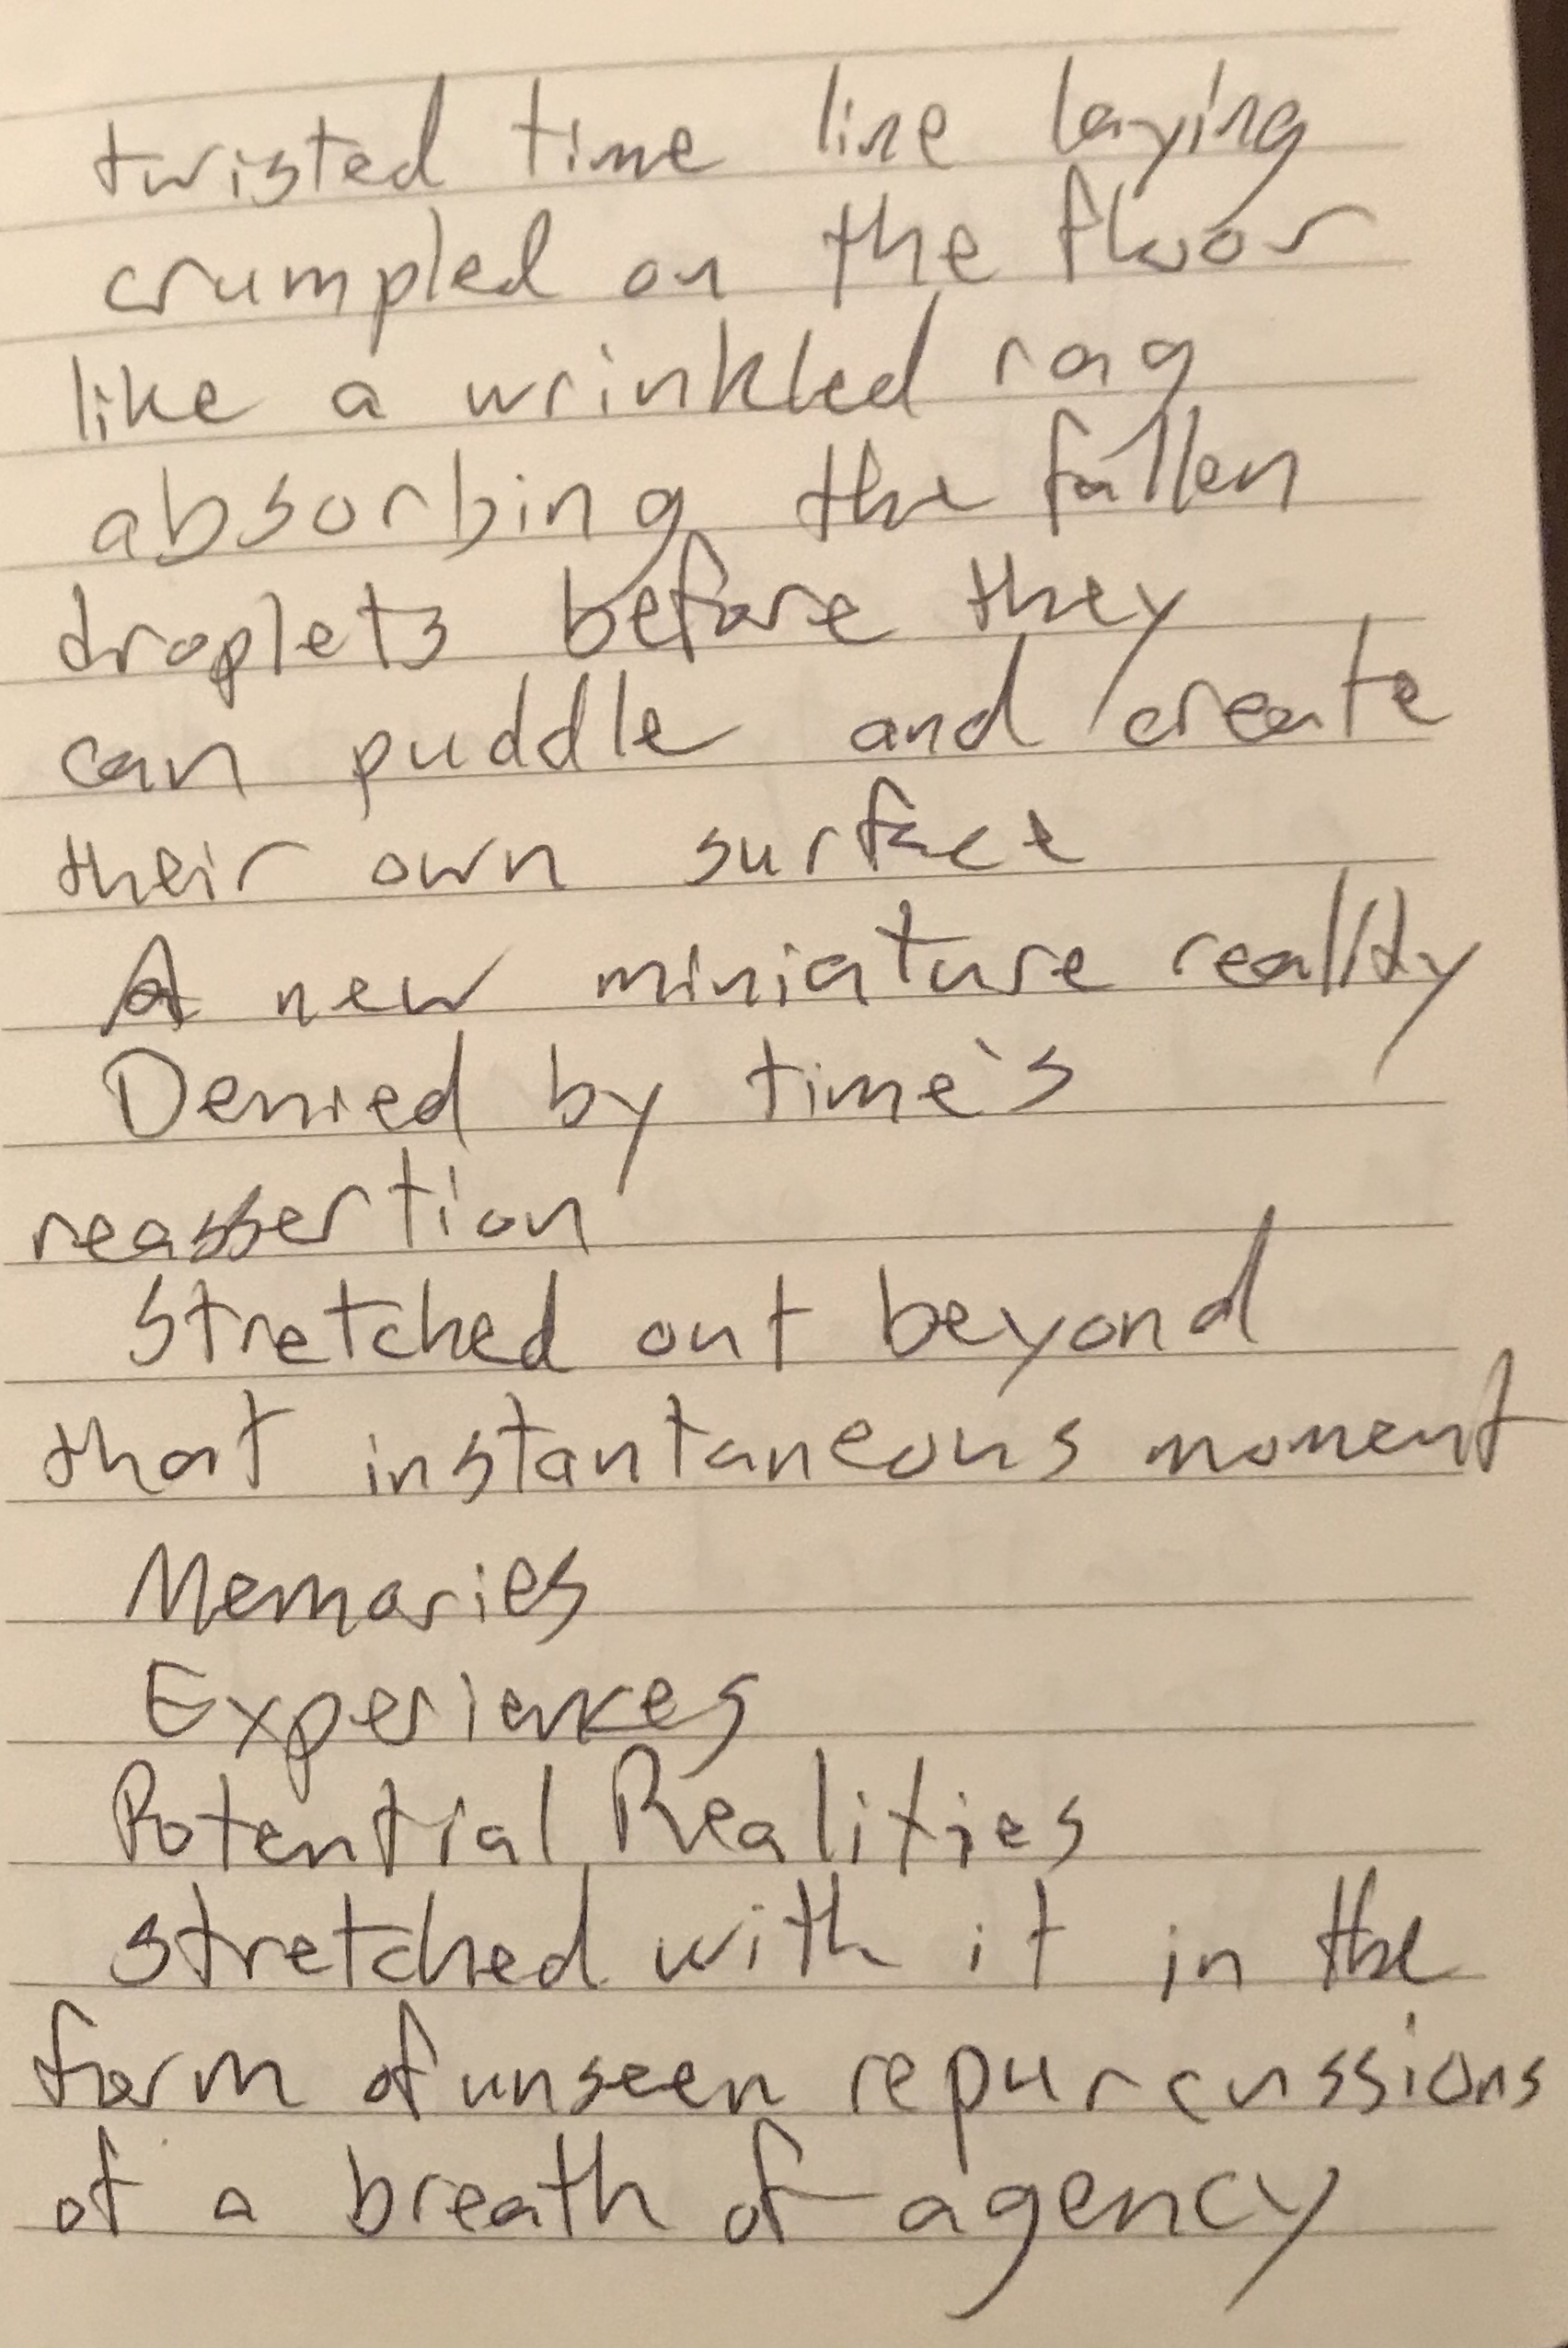 twisted time line laying
crumpled on the floor
like a wrinkled rag
absorbing the fallen
droplets before they
can puddle and create
their own surface
A new miniature reality
Denied by time's
reassertion
Stretched out beyond
that instantaneous moment
Memories
Experiences
Potential Realities
stretched with it in the
form of unseen repurcussions
of a breath of agency